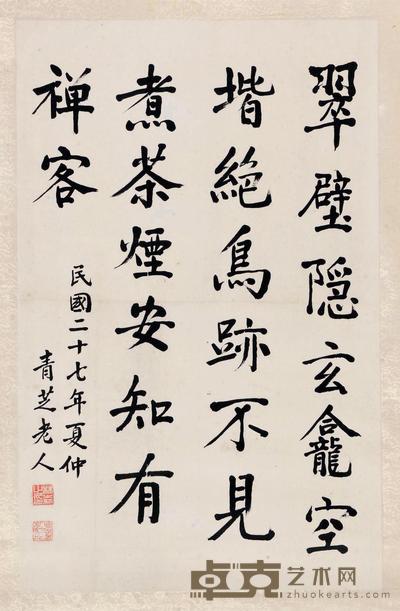 翠壁隱玄龕空
堦絕鳥跡不見
煮茶煙安知有
禪客
民國二十七年夏仲
青芝老人
卓克艺术网
zhuokearts.com